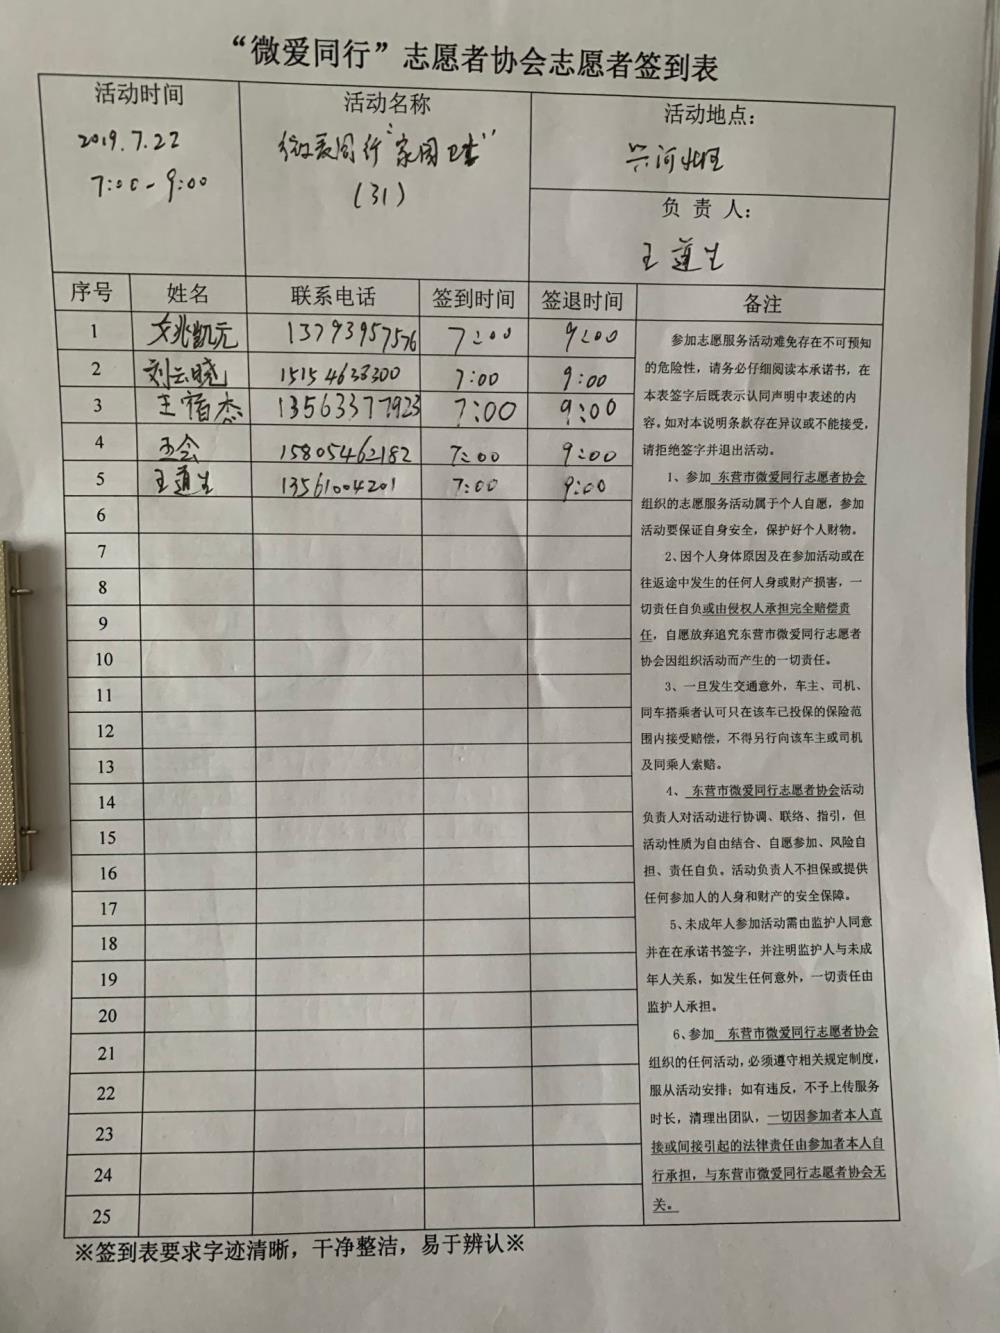 “微爱同行”志愿者协会志愿者签到表
活动时间
2019.7.22
7:00-9:00
活动名称
微爱同行“家园卫士”
(31)
活动地点：
兴河北旺
负 责 人：
王道生
序号 姓名 联系电话 签到时间 签退时间 备注
1 凯元 13793957576 7:00 9:00
2 刘云晓 15154633300 7:00 9:00
3 王宿杰 13563377923 7:00 9:00
4 王会 15805462182 7:00 9:00
5 王道生 13561004201 7:00 9:00
6
7
8
9
10
11
12
13
14
15
16
17
18
19
20
21
22
23
24
25
参加志愿服务活动难免存在不可预知
的危险性，请务必仔细阅读本承诺书，在
本表签字后既表示认同声明中表述的内
容。如对本说明条款存在异议或不能接受，
请拒绝签字并退出活动。
1、参加 东营市微爱同行志愿者协会
组织的志愿服务活动属于个人自愿，参加
活动要保证自身安全，保护好个人财物。
2、因个人身体原因及在参加活动或在
往返途中发生的任何人身或财产损害，一
切责任自负或由侵权人承担完全赔偿责
任，自愿放弃追究东营市微爱同行志愿者
协会因组织活动而产生的一切责任。
3、一旦发生交通意外，车主、司机、
同车搭乘者认可只在该车已投保的保险范
围内接受赔偿，不得另行向该车主或司机
及同乘人索赔。
4、 东营市微爱同行志愿者协会活动
负责人对活动进行协调、联络、指引，但
活动性质为自由结合、自愿参加、风险自
担、责任自负。活动负责人不担保或提供
任何参加人的人身和财产的安全保障。
5、未成年人参加活动需由监护人同意
并在在承诺书签字，并注明监护人与未成
年人关系，如发生任何意外，一切责任由
监护人承担。
6、参加 东营市微爱同行志愿者协会
组织的任何活动，必须遵守相关规定制度，
服从活动安排；如有违反，不予上传服务
时长，清理出团队，一切因参加者本人直
接或间接引起的法律责任由参加者本人自
行承担，与东营市微爱同行志愿者协会无
关。
※签到表要求字迹清晰，干净整洁，易于辨认※